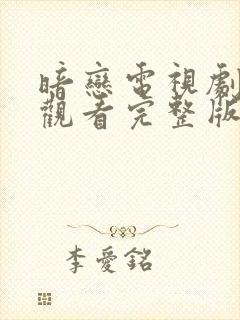 暗戀電視劇
觀看完整版
李愛銘